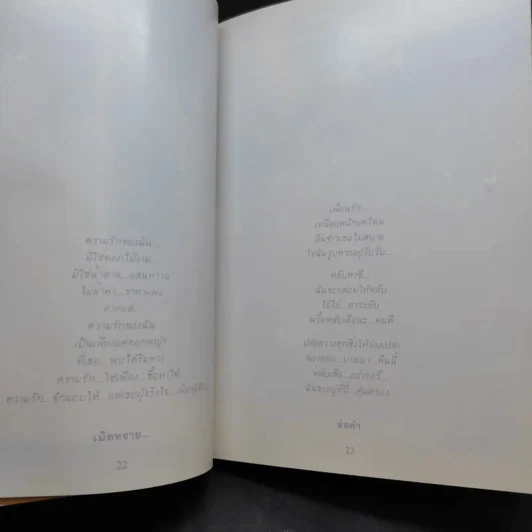 ความรักของฉัน...
มิใช่ดอกไม้งาม...
มิใช่น้ำตาล...แสนหวาน
ไม่ล้ำค่า...ราคาแพง
หากแต่...
ความรักของฉัน
เป็นเพียงแค่ดอกหญ้า
ที่เธอ...พบได้ริมทาง
ความรัก...ใช่เพียง...ซื้อหาได้
ความรัก...ฉันมอบให้...แด่เธอผู้จริงใจ...
เม็ดทราย...
22
เพื่อนรัก...
เหนื่อยหนักแค่ไหน
ฉันทราบเธอไม่สบาย
ใจฉันวูบหายอยู่วับวับ...
หลับตาซิ...
ฉันจะกล่อมให้หลับ
พริ้มหลับเสียนะ...คนดี
ปลดวางทุกสิ่งให้ว่างเปล่า
ล่องลอย...บางเบา...คืนนี้
หลับเสีย...อย่ารอรี
ฉันจะอยู่ที่นี่...คุ้มครอง
ช่อคำ
23